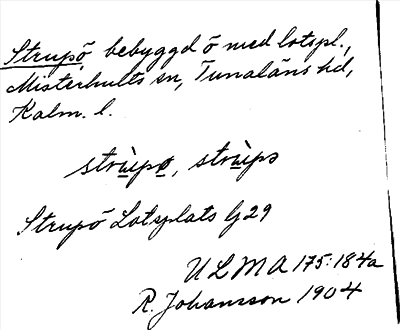 Strupö, bebyggd ö med lotspl.,
Misterhults sn, Tunaläns hd,
Kalm. l.
strùpø, strùpə
Strupö Lotsplats G 29
ULMA 175:184a
R. Johansson 1904